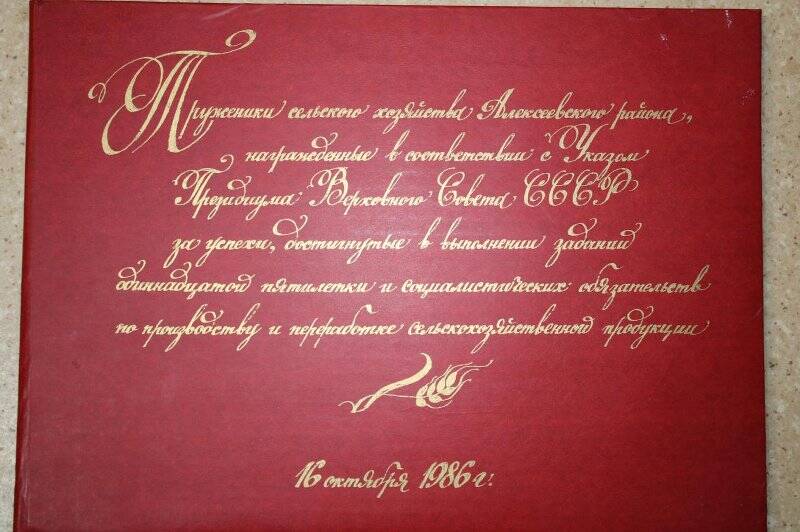 Труженики сельского хозяйства Алексеевского района,
награжденные в соответствии с Указом
Президиума Верховного Совета СССР
за успехи, достигнутые в выполнении заданий
одиннадцатой пятилетки и социалистических обязательств
по производству и переработке сельскохозяйственной продукции
16 октября 1986 г.